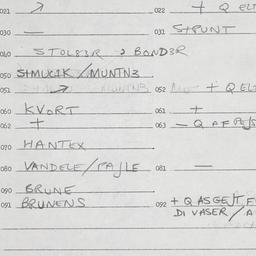 021 022 + Q ELT
030 — 031 S+PUNT
040 STOL83R 2 BOND3R
050 S+MUCIK / MUNTN3
051 052 + Q ELT
060 KVORT 061 +
062 + 063 — Q AF
070 HANTEX
080 VANDELE / PAJLE 081 —
090 BRUNE
091 BRUNENS 092 + Q ASGEJT
DI VASER /